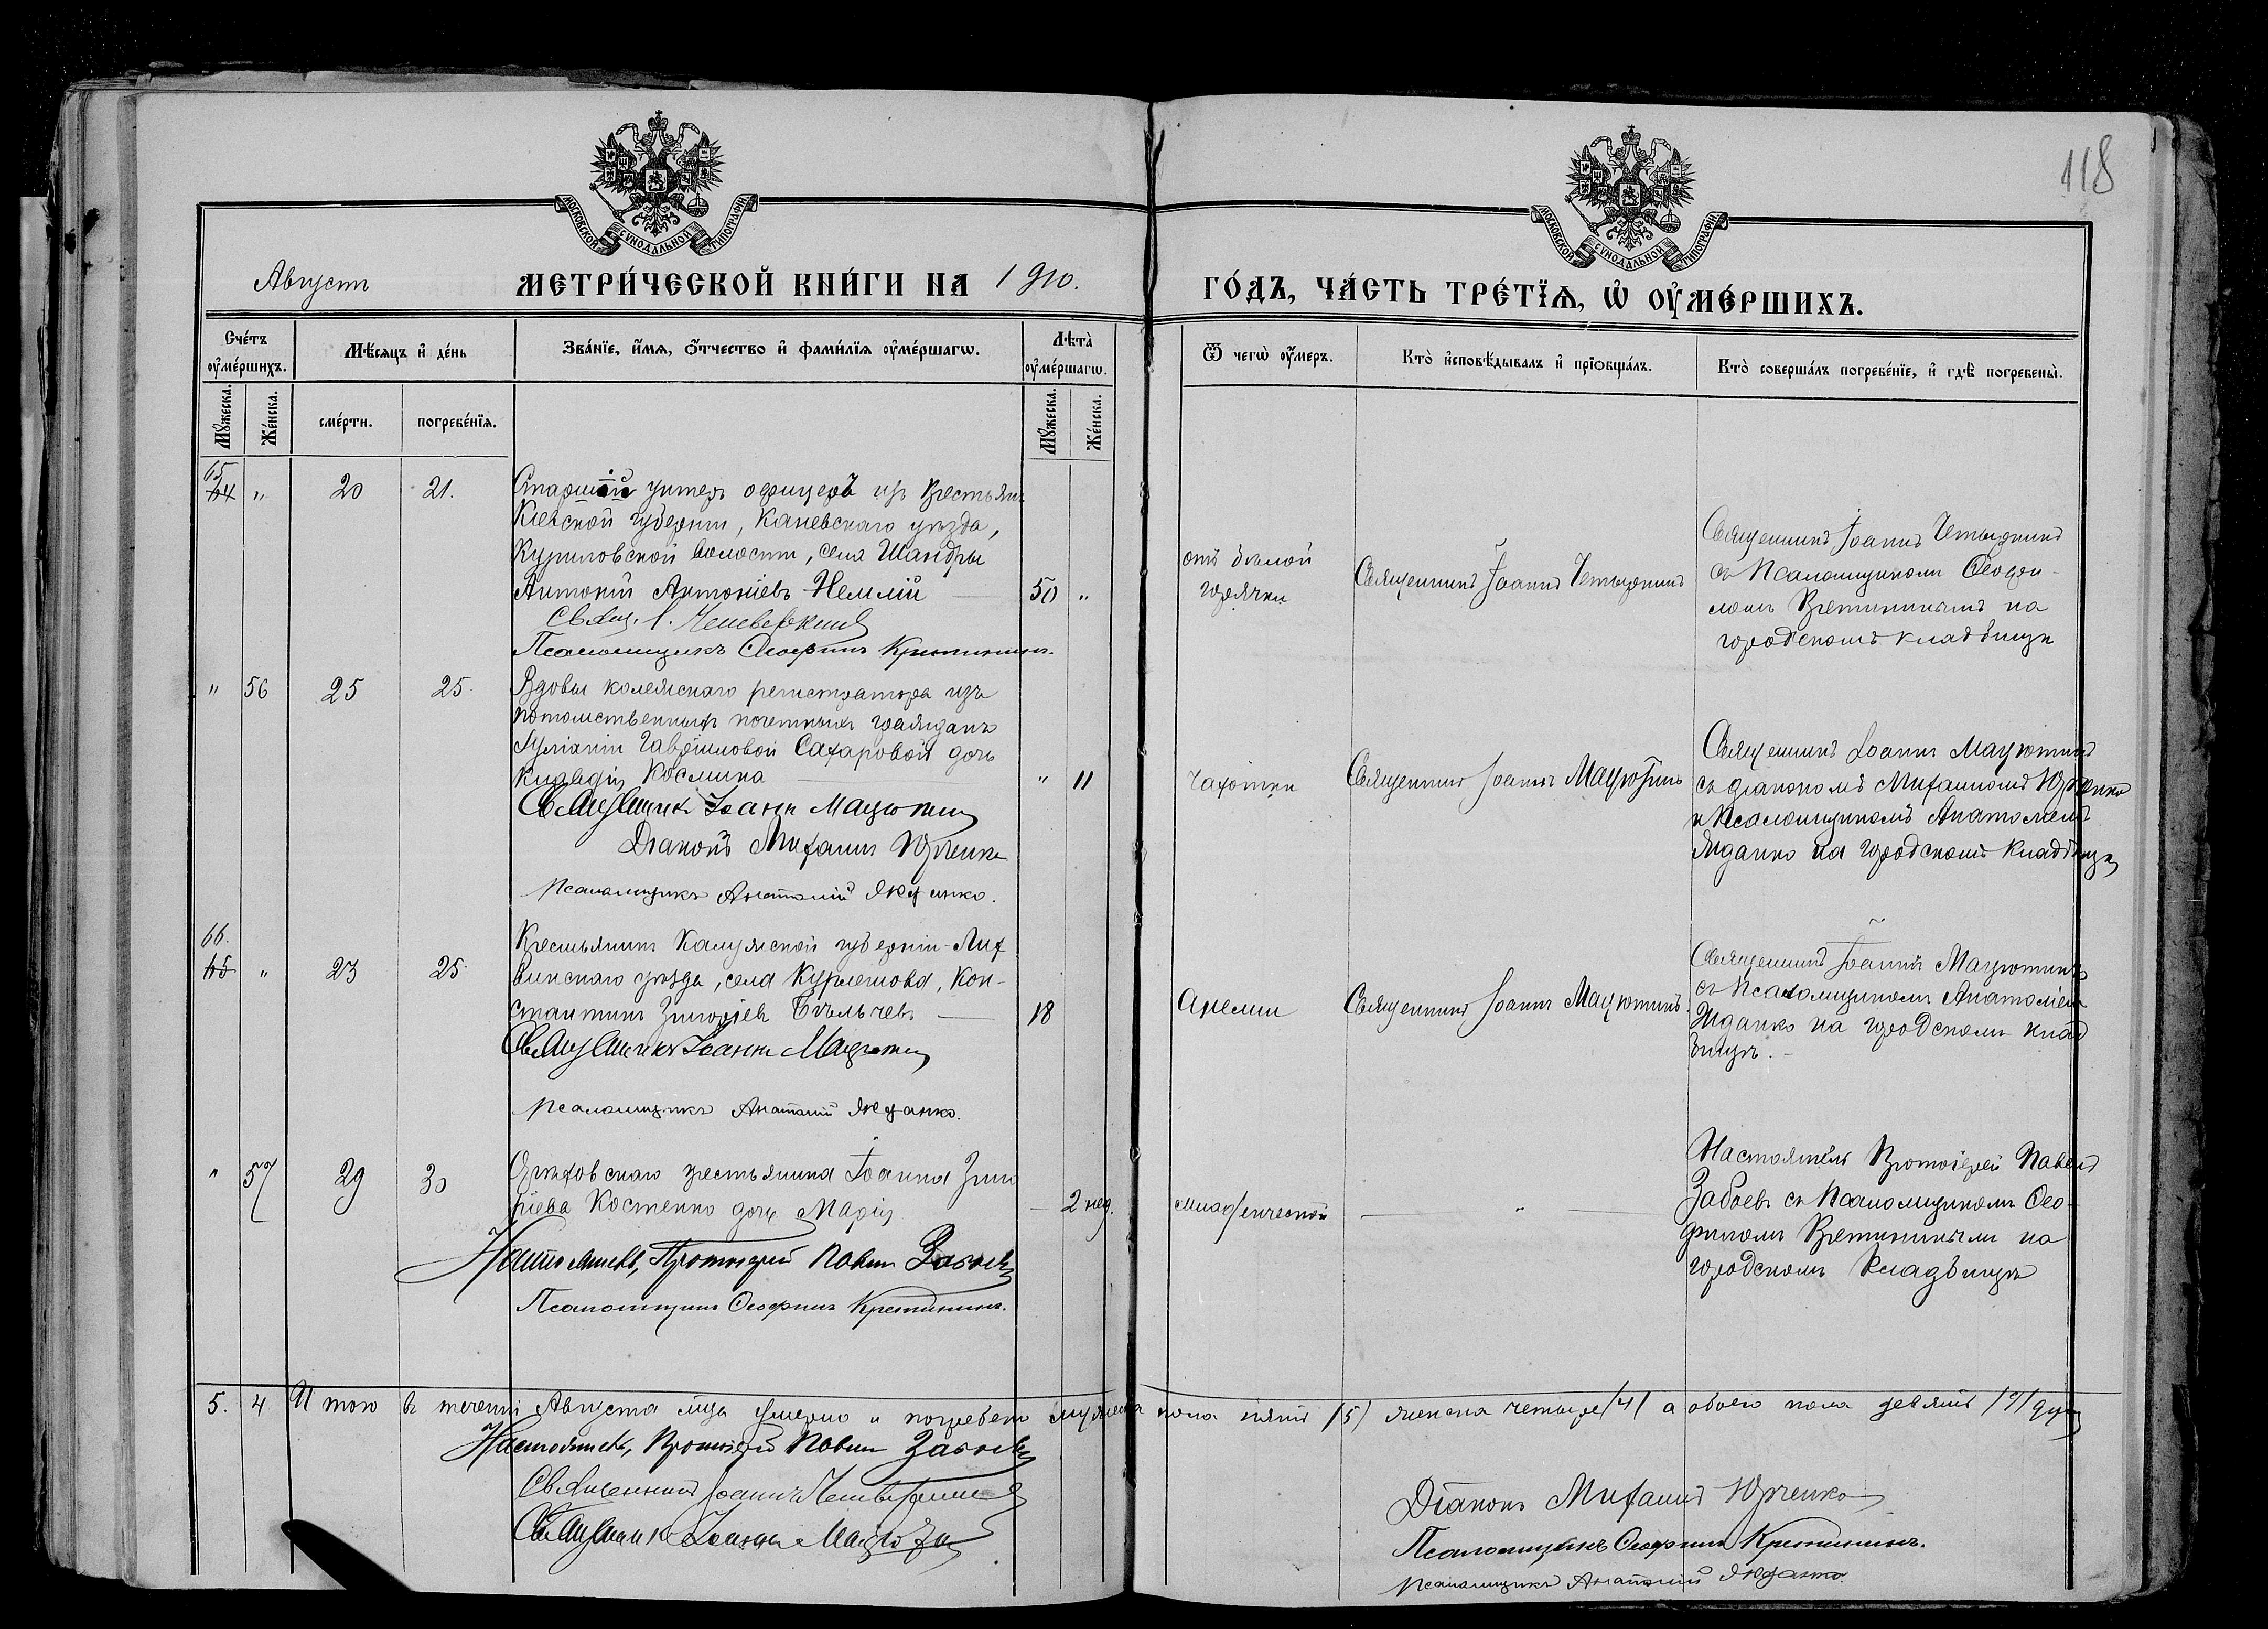 118
МОСКОВСКОЙ СѴНОДАЛЬНОЙ ТИПОГРАФІИ
МОСКОВСКОЙ СѴНОДАЛЬНОЙ ТИПОГРАФІИ
Августъ МЕТРИ́ЧЕСКОЙ КНИ́ГИ НА 1910.
ГО́ДЪ, ЧА́СТЬ ТРЕ́ТЇѦ, Ѡ҆ ОУ҆МЕ́РШИХЪ.
Сче́тъ оу҆ме́ршихъ.
Мѣ́сѧцъ и҆ де́нь
Зва́нїе, и҆́мѧ, ѻ҆́тчество и҆ фами́лїѧ оу҆ме́ршагѡ.
Лѣта̀ оу҆ме́ршагѡ.
Ѿ чегѡ̀ оу҆́меръ.
Кто̀ и҆сповѣ́дывалъ и҆ прїѡбща́лъ.
Кто̀ соверша́лъ погребе́нїе, и҆ гдѣ̀ погребены̀.
Мꙋ́жеска.
Же́нска.
сме́рти.
погребе́нїѧ.
Мꙋ́жеска.
Же́нска.
65
64 " 20 21.
Старшій унтеръ офицеръ изъ крестьянъ
Кіевской губерніи, Каневскаго уѣзда,
Куриловской волости, села Шандры
Антоній Антоніевъ Немлій 50 "
Свящ. І. Четверкинъ
Псаломщикъ Ѳеофилъ Кретининъ.
отъ бѣлой
горячки
Священникъ Іоаннъ Четыркинъ
Священникъ Іоаннъ Четыркинъ
съ Псаломщикомъ Ѳеофи-
ломъ Кретининымъ на
городскомъ кладбищѣ
" 56 25 25.
Вдовы колежскаго регистратора изъ
потомственныхъ почетныхъ гражданъ
Іуліаніи Гавріиловой Сахаровой дочь
Клавдія Космина " 11
Священникъ Іоаннъ Мацютинъ
Діаконъ Михаилъ Юрченко
Псаломщикъ Анатолій Жданко.
Чахотки
Священникъ Іоаннъ Мацютинъ
Священникъ Іоаннъ Мацютинъ
съ діакономъ Михаиломъ Юрченко
и Псаломщикомъ Анатоліемъ
Жданко на городскомъ кладбищѣ
66.
65 " 23 25.
Крестьянинъ Калужской губерніи Лих
винскаго уѣзда, села Курлешова, Кон-
стантинъ Григоріевъ Бѣльчевъ 18
Священникъ Іоаннъ Мацютинъ
Псаломщикъ Анатолій Жданко.
Анеміи
Священникъ Іоаннъ Мацютинъ.
Священникъ Іоаннъ Мацютинъ
съ Псаломщикомъ Анатоліемъ
Жданко на городскомъ клад
бищѣ.
" 57 29 30
крестьянина Іоанна Григо
ріева Костенко дочь Марія 2 нед.
Настоятель, Протоіерей Павелъ Забоевъ
Псаломщикъ Ѳеофилъ Кретининъ.
младенческой
"
Настоятель Протоіерей Павелъ
Забоевъ съ Псаломщикомъ Ѳео-
филомъ Кретининымъ на
городскомъ кладбищѣ
5. 4 Итого въ теченіи Августа мца умерло и погребено мужеска пола пять /5/ женска четыре /4/ а обоего пола девять /9/ душъ
Настоятель, Протоіерей Павелъ Забоевъ
Священникъ Іоаннъ Четверкинъ
Священникъ Іоаннъ Мацютинъ
Діаконъ Михаилъ Юрченко
Псаломщикъ Ѳеофилъ Кретининъ.
Псаломщикъ Анатолій Жданко.